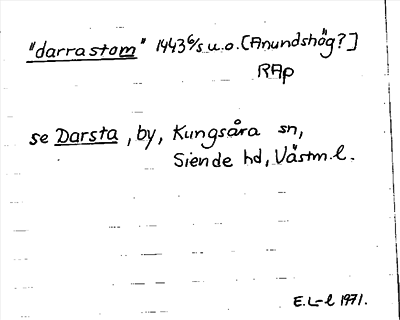 "darrastom" 1443 6/5 u.o. [Anundshög?]
RAp
se Darsta, by, Kungsåra sn,
Siende hd, Västm.l.
E. L-l 1971.